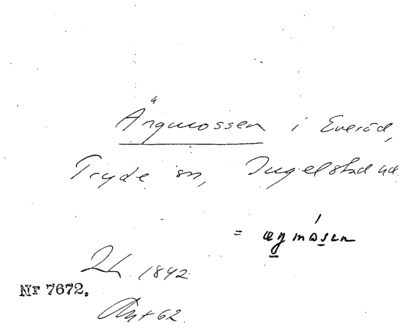 Ängmossen i Everöd,
Tryde sn, Ingelstad
= æŋmåsen
1842
Nr 7672.
62